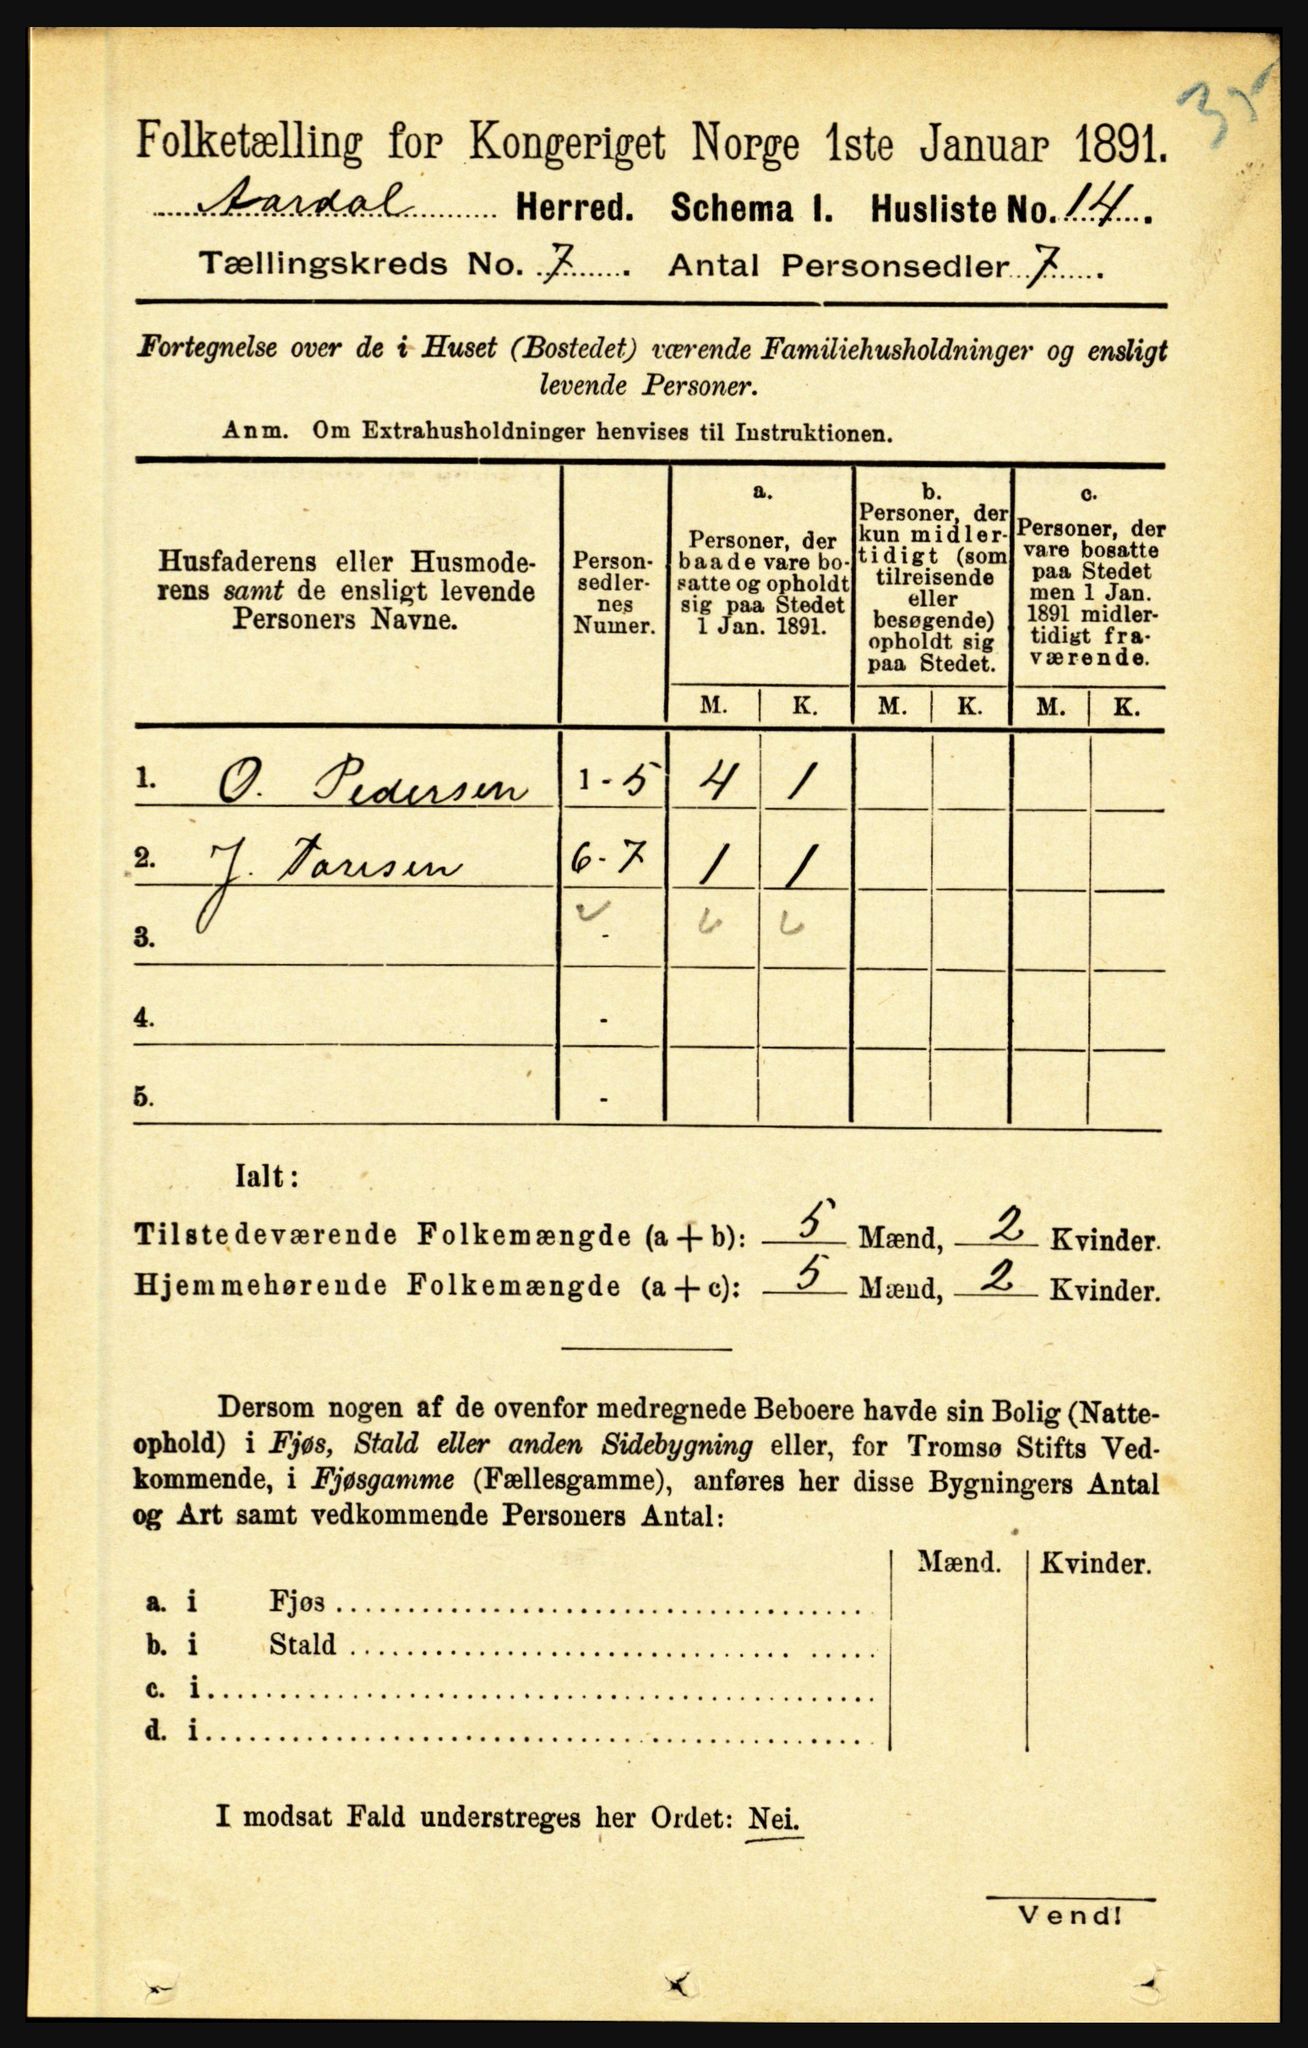 35
Folketælling for Kongeriget Norge 1ste Januar 1891.
Aardal Herred. Schema I. Husliste No. 14.
Tællingskreds No. 7. Antal Personsedler 7.
Fortegnelse over de i Huset (Bostedet) værende Familiehusholdninger og ensligt
levende Personer.
Anm. Om Extrahusholdninger henvises til Instruktionen.
Husfaderens eller Husmode-
rens samt de ensligt levende
Personers Navne.
Person-
sedler-
nes
Numer.
a.
Personer, der
baade vare bo-
satte og opholdt
sig paa Stedet
1 Jan. 1891.
b.
Personer, der
kun midler-
tidigt (som
tilreisende
eller
besøgende)
opholdt sig
paa Stedet.
c.
Personer, der
vare bosatte
paa Stedet
men 1 Jan.
1891 midler-
tidigt fra-
værende.
M. K. M. K. M. K.
1. O. Pedersen 1-5 4 1
2. J. Toresen 6-7 1 1
3. -
4. -
5. -
Ialt:
Tilstedeværende Folkemængde (a+b): 5 Mænd, 2 Kvinder.
Hjemmehørende Folkemængde (a+c): 5 Mænd, 2 Kvinder.
Dersom nogen af de ovenfor medregnede Beboere havde sin Bolig (Natte-
ophold) i Fjøs, Stald eller anden Sidebygning eller, for Tromsø Stifts Ved-
kommende, i Fjøsgamme (Fællesgamme), anføres her disse Bygningers Antal
og Art samt vedkommende Personers Antal:
Mænd. Kvinder.
a. i Fjøs
b. i Stald
c. i
d. i
I modsat Fald understreges her Ordet: Nei.
Vend!